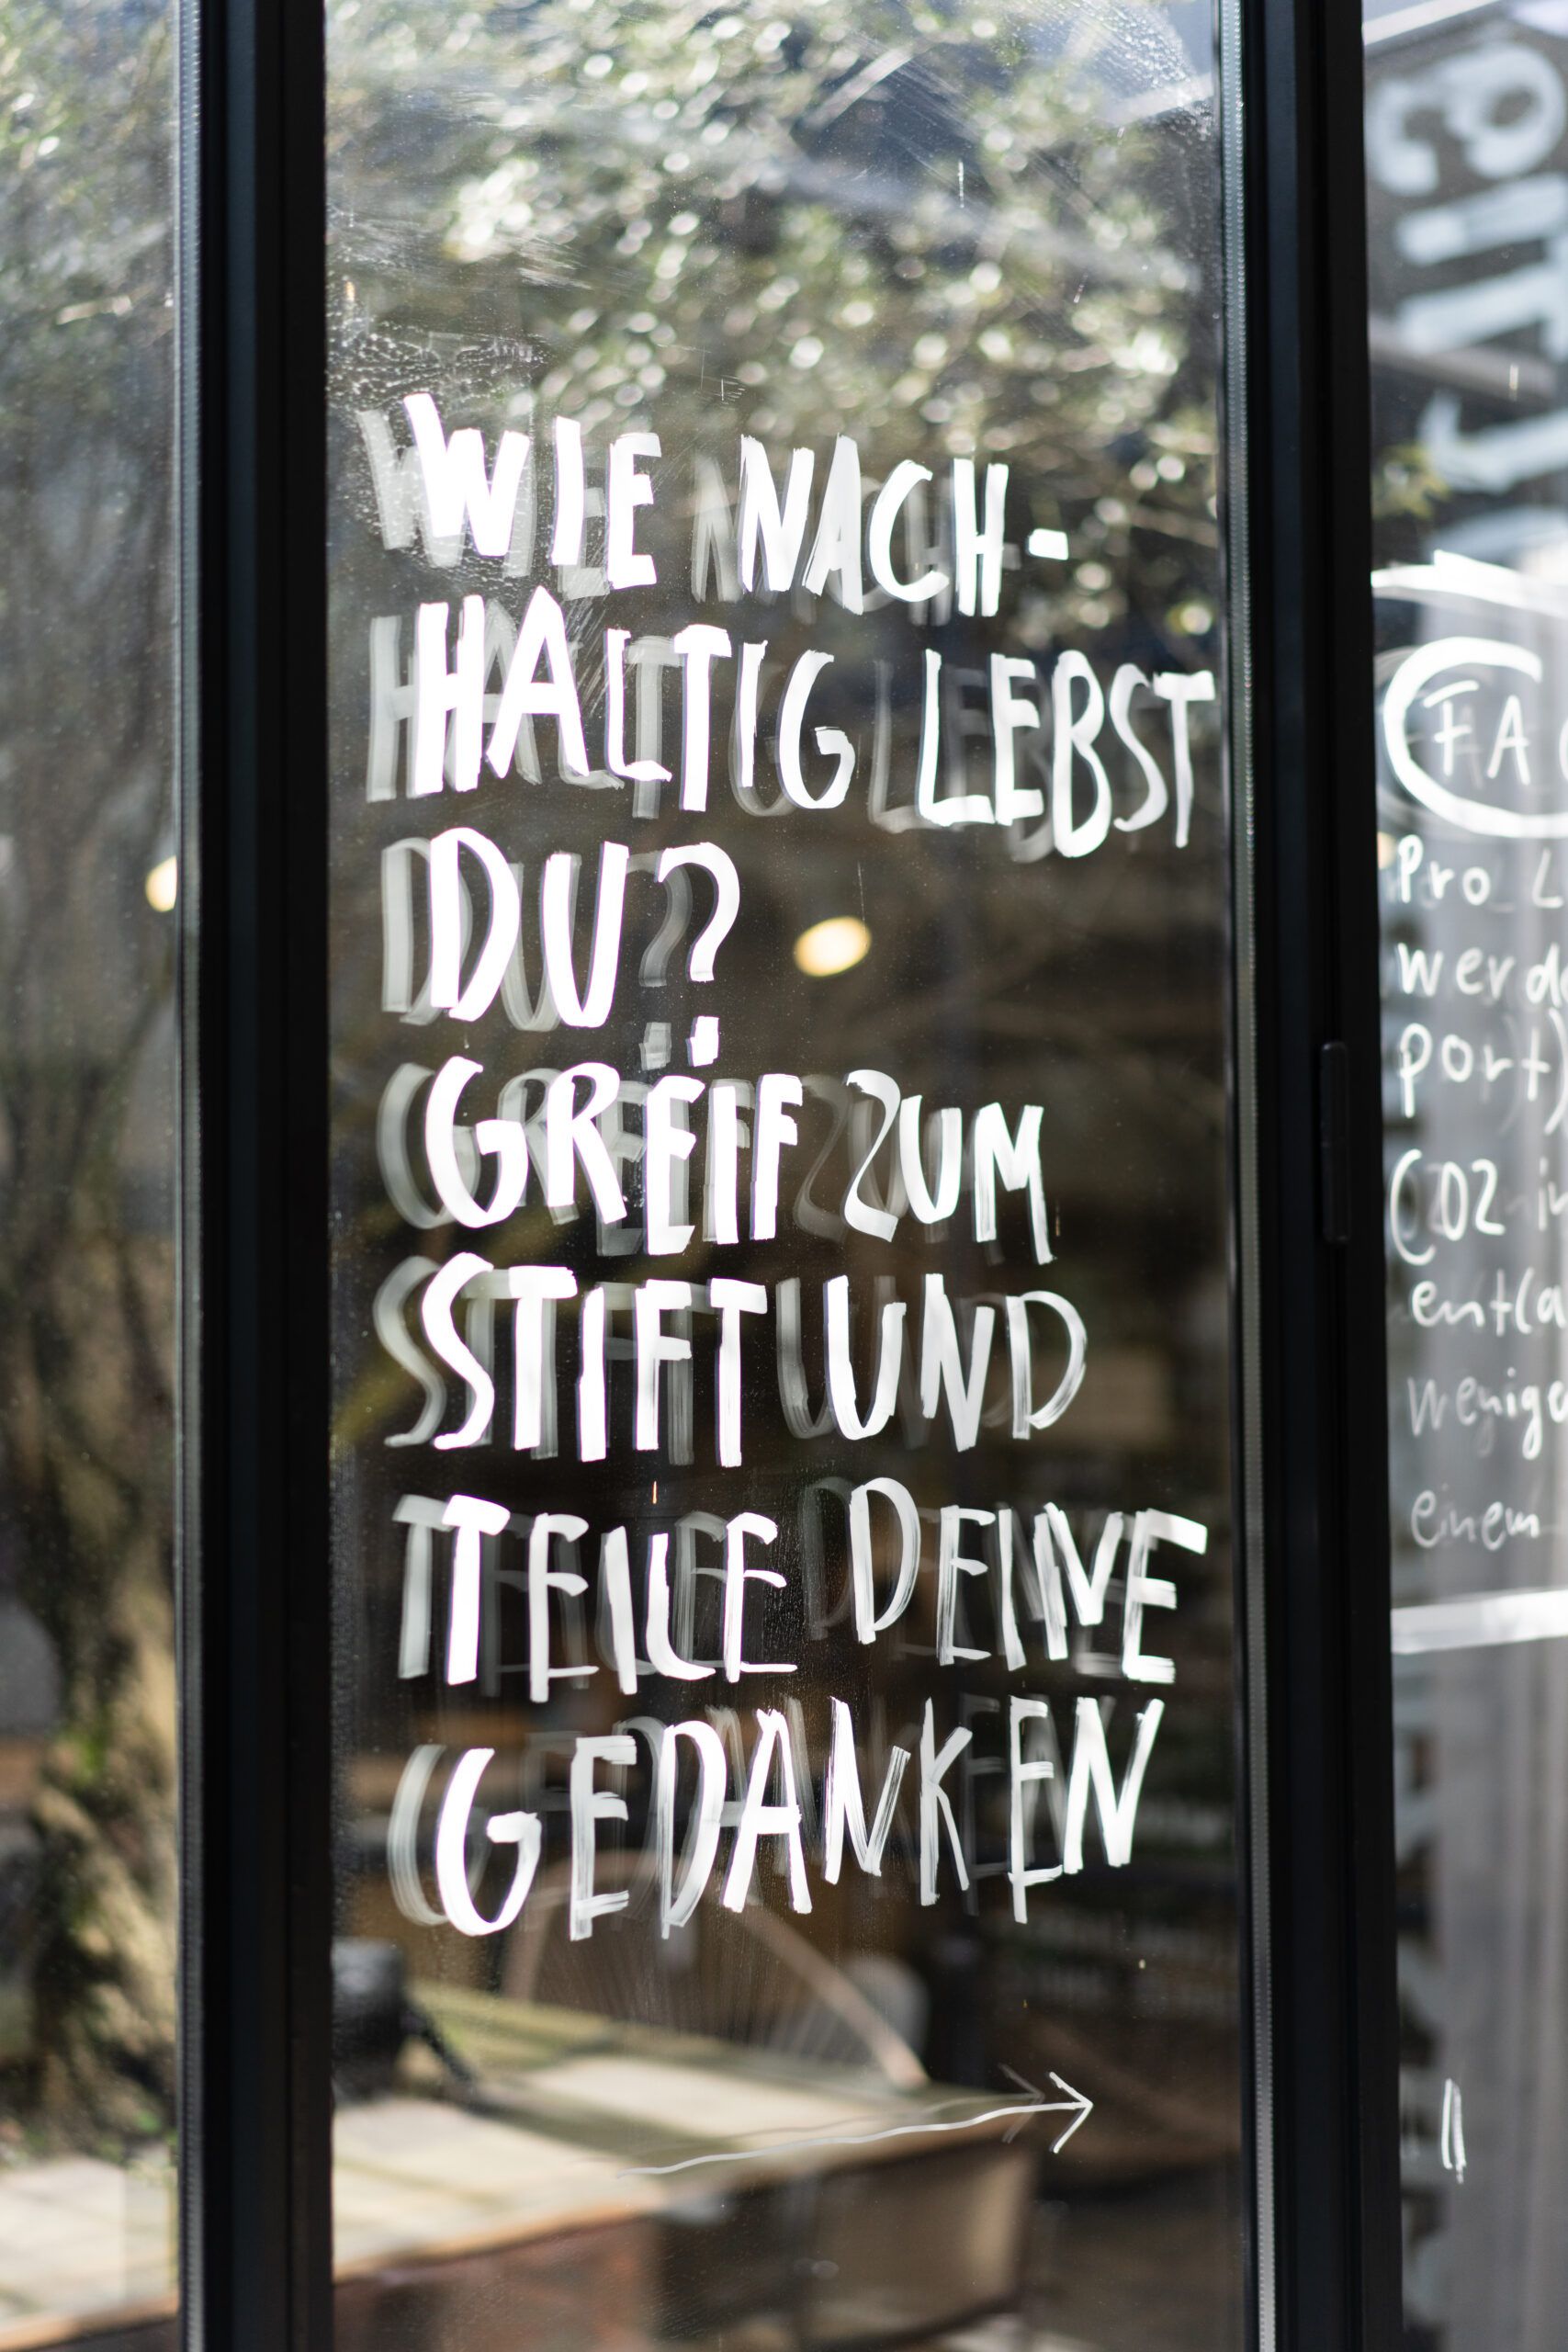 WIE NACH-
HALTIG LEBST
DU?
GREIF ZUM
STIFT UND
TEILE DEINE
GEDANKEN
FA
Pro L
werde
port)
CO2 in
entla
wenige
einem